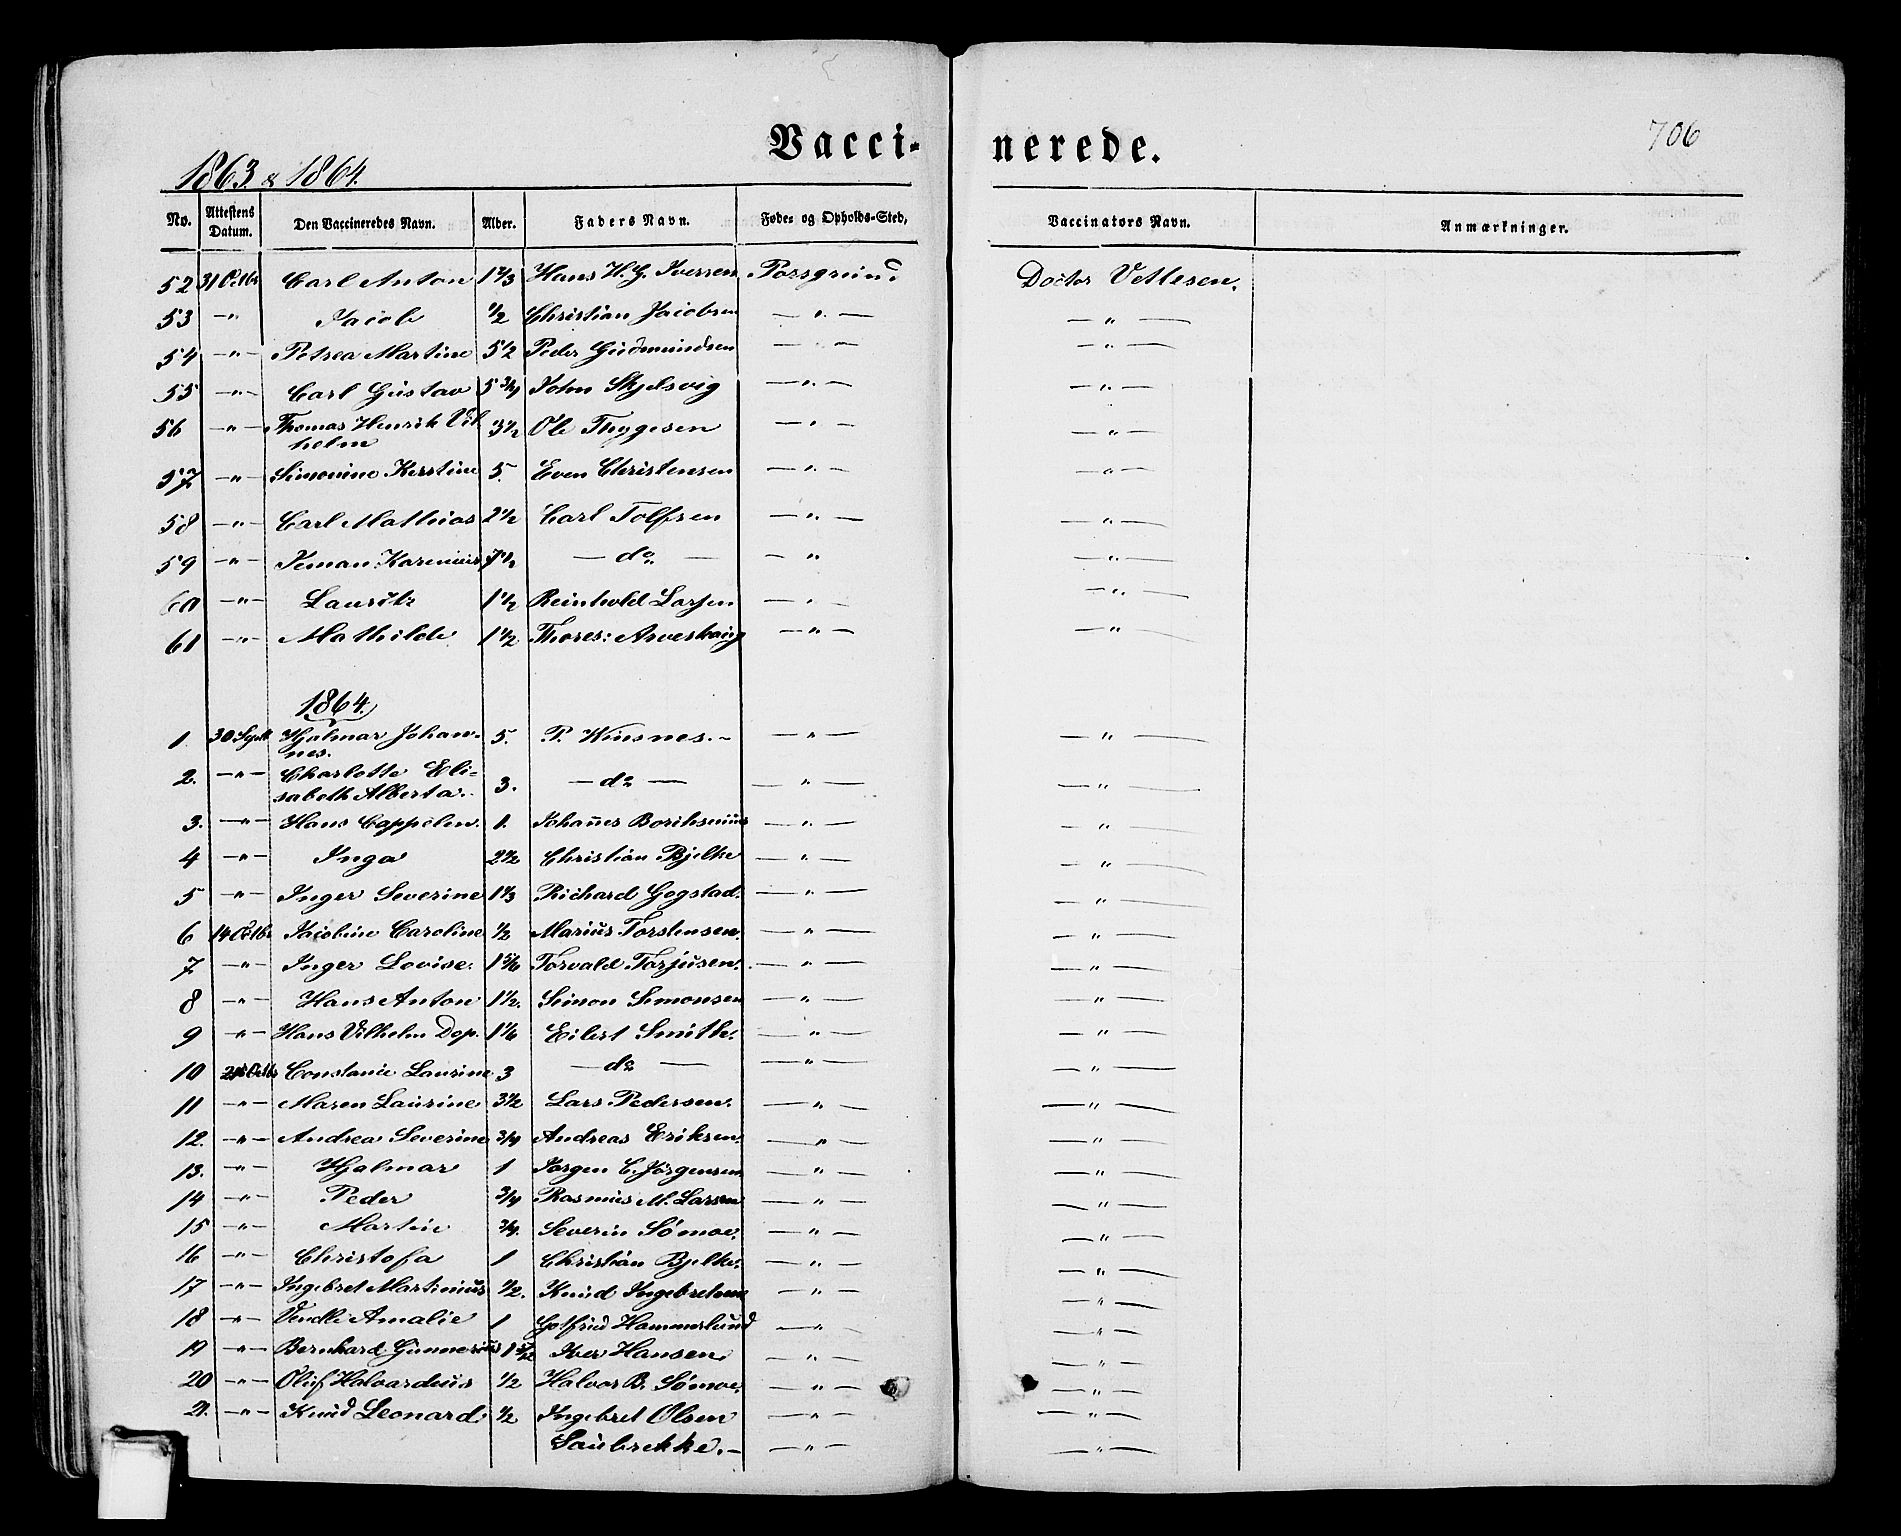 Vacci- nerede.
706
1863 & 1864.
No. Attestens Datum. Den Vaccineredes Navn. Alder. Faders Navn. Føde- og Opholds-Sted, Vaccinators Navn. Anmærkninger.
52 31 Octbr Carl Anton 1 2/3 Hans H. G. Iversen Porsgrund. Doctor Vetlesen.
53 —"— Jacob 1/2 Christian Jacobsen —"— —"—
54 —"— Petrea Martine 5 1/2 Peder Gudmundsen —"— —"—
55 —"— Carl Gustav 5 3/4 John Skjelsvig —"— —"—
56 —"— Thomas Henrik Vil- 3 1/2 Ole Thygesen —"— —"—
helm
57 —"— Simonine Kirstine 5. Even Christensen —"— —"—
58 —"— Carl Mathias 2 1/2 Carl Tolfsen —"— —"—
59 —"— Karenius 1/2 — do — —"— —"—
60 —"— Lauritz 1 1/2 Reinhold Larsen —"— —"—
61 —"— Mathilde 1 1/2 Thores: —"— —"—
1864.
1. 30 Septb Hjalmar Johan- 5. P. Winsnes. —"— —"—
nes.
2. —"— Charlotte Eli- 3. — do — —"— —"—
sabeth Alberta.
3. —"— Hans Cappelen. 1. Johannes —"— —"—
4 —"— Inga 2 1/2 Christian Bjelke —"— —"—
5 —"— Inger Severine 1 1/3 Richard Gogstad. —"— —"—
6 14 Octbr Jacobine Caroline 1/2 Marius Torstensen. —"— —"—
7 —"— Inger Lovise. 1 5/6 Torvald Torjusen. —"— —"—
8 —"— Hans Anton 1 1/2. Simon Simonsen —"— —"—
9 —"— Hans Vilhelm Dop. 1 1/6 Eilert Smith. —"— —"—
10 Octbr Constanie Laurine 3 — do — —"— —"—
11 —"— Maren Laurine 3 1/2 Lars Pedersen. —"— —"—
12. —"— Andrea Severine 3/4 Andreas Eriksen. —"— —"—
13. —"— Hjalmar 1 Jørgen C. Jørgensen —"— —"—
14 —"— Peder 3/4 Rasmus M. Larsen —"— —"—
15 —"— Martin 3/4. Severin Sømoe. —"— —"—
16 —"— Christofa 1 Christian Bjelke. —"— —"—
17 —"— Ingebret Martinius 1/2. Knud Ingebretsen —"— —"—
18 —"— Vendle Amalie 1 Gotfried Hammerlund —"— —"—
19 —"— Bernhard Gunnerius 1 5/12 Iver Hansen. —"— —"—
20 —"— Oluf Halvardius 1/2 Halvor B. Sømoe. —"— —"—
21. —"— Knud Leonard. 1/2 Ingebret Olsen —"— —"—
Saubrekke. —"— —"—